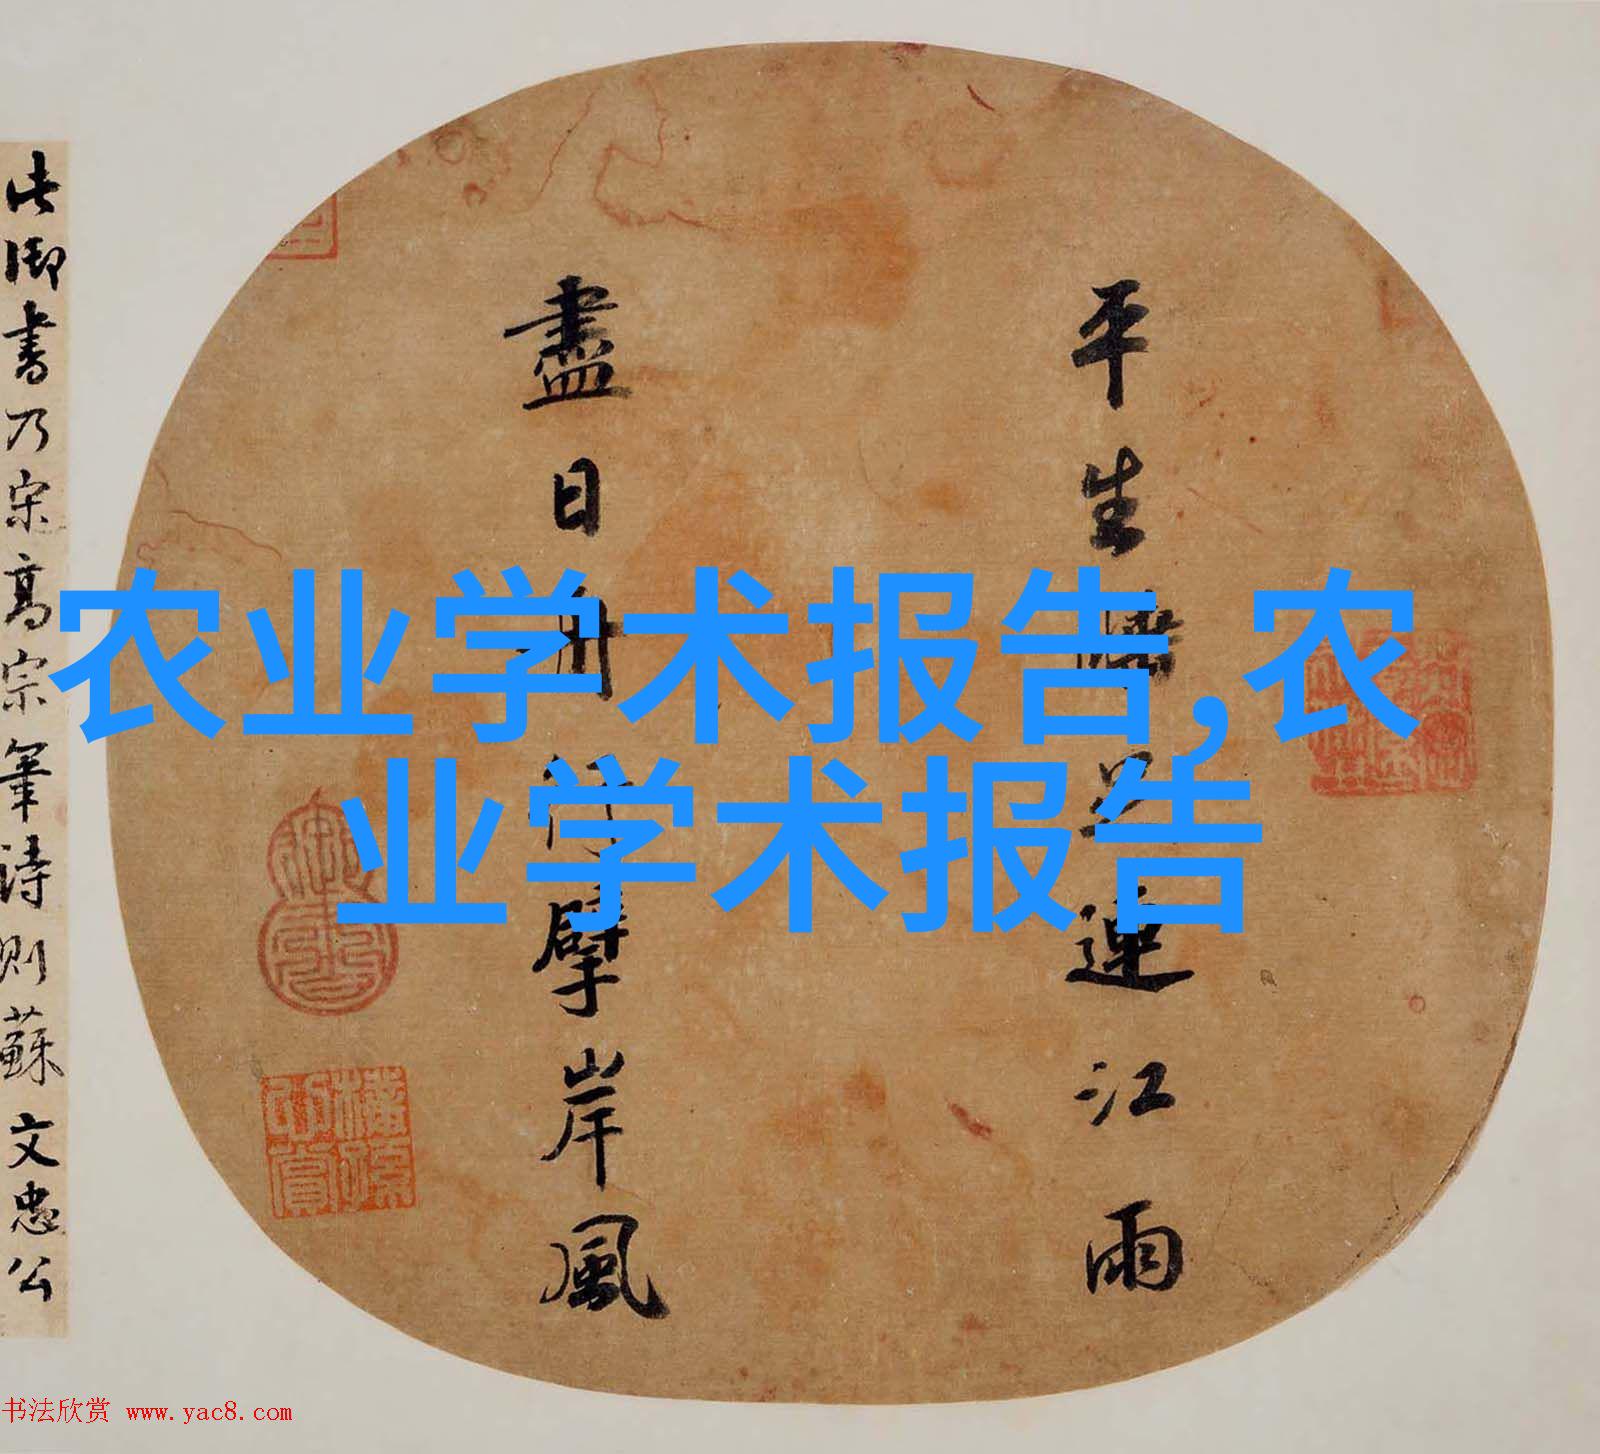 农业学术报告,农
业学术报告
平生
连江雨
盡日
擘岸風
此御書乃宋高宗筆詩則蘇文忠公
书法欣赏 www.yac8.com